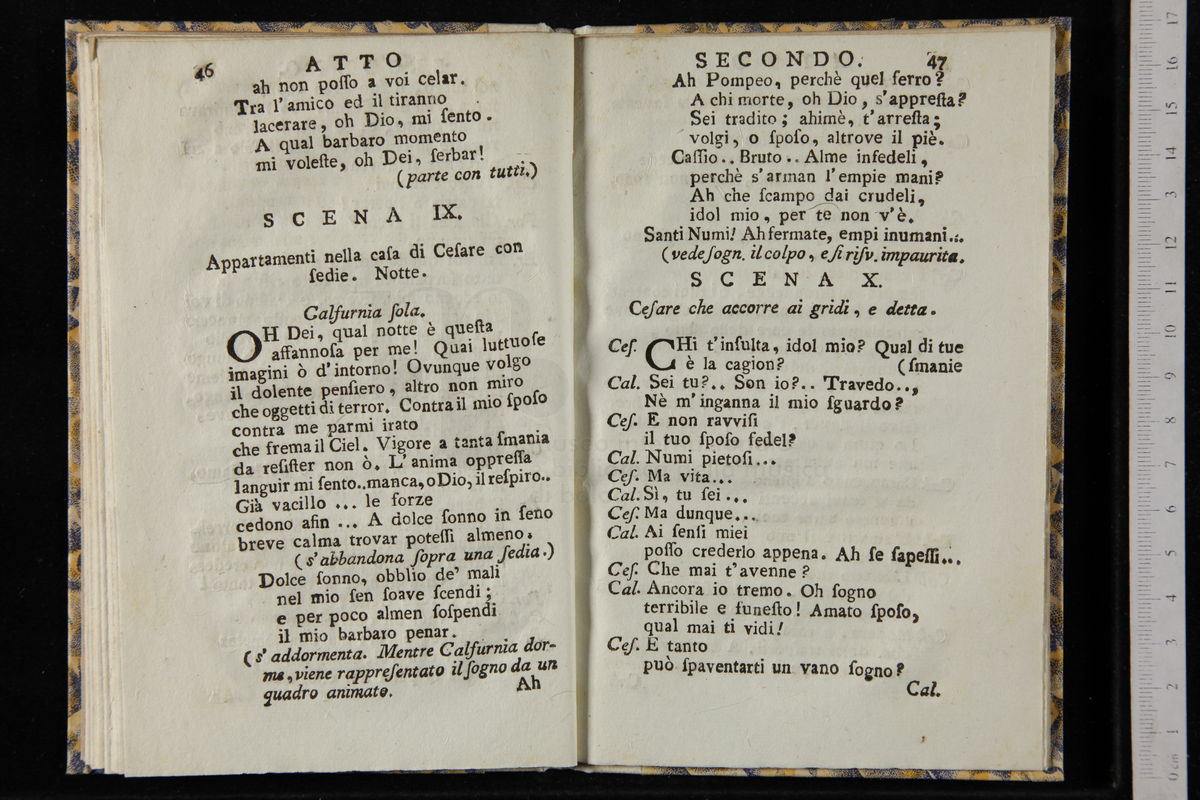 46 ATTO
ah non poſſo a voi celar.
Tra l'amico ed il tiranno
lacerare, oh Dio, mi ſento.
A qual barbaro momento
mi voleſte, oh Dei, ſerbar!
(parte con tutti.)
SCENA IX.
Appartamenti nella caſa di Ceſare con
ſedie. Notte.
Calfurnia ſola.
OH Dei, qual notte è queſta
affannoſa per me! Quai luttuoſe
imagini ò d'intorno! Ovunque volgo
il dolente penſiero, altro non miro
che oggetti di terror. Contra il mio ſpoſo
contra me parmi irato
che frema il Ciel. Vigore a tanta ſmania
da reſiſter non ò. L'anima oppreſſa
languir mi ſento..manca, o Dio, il reſpiro..
Già vacillo ... le forze
cedono afin ... A dolce ſonno in ſeno
breve calma trovar poteſſi almeno.
(s'abbandona ſopra una ſedia.)
Dolce ſonno, obblio de' mali
nel mio ſen ſoave ſcendi;
e per poco almen ſoſpendi
il mio barbaro penar.
(s'addormenta. Mentre Calfurnia dor-
me, viene rappreſentato il ſogno da un
quadro animato. Ah
SECONDO. 47
Ah Pompeo, perchè quel ferro?
A chi morte, oh Dio, s'appreſta?
Sei tradito; ahimè, t'arreſta;
volgi, o ſpoſo, altrove il piè.
Caſſio.. Bruto.. Alme infedeli,
perchè s'arman l'empie mani?
Ah che ſcampo dai crudeli,
idol mio, per te non v'è.
Santi Numi! Ah fermate, empi inumani...
(vede ſogn. il colpo, e ſi riſv. impaurita.
SCENA X.
Ceſare che accorre ai gridi, e detta.
Ceſ. CHi t'inſulta, idol mio? Qual di tue
è la cagion? (ſmanie
Cal. Sei tu?.. Son io?.. Travedo..,
Nè m'inganna il mio ſguardo?
Ceſ. E non ravviſi
il tuo ſpoſo fedel?
Cal. Numi pietoſi...
Ceſ. Ma vita...
Cal. Sì, tu ſei ...
Ceſ. Ma dunque...
Cal. Ai ſenſi miei
poſſo crederlo appena. Ah ſe ſapeſſi...
Ceſ. Che mai t'avenne?
Cal. Ancora io tremo. Oh ſogno
terribile e funeſto! Amato ſpoſo,
qual mai ti vidi!
Ceſ. E tanto
può ſpaventarti un vano ſogno?
Cal.
0 cm 1 2 3 4 5 6 7 8 9 10 11 12 13 14 15 16 17